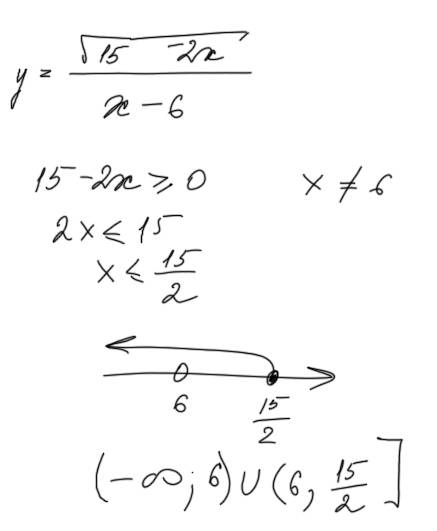 y = √(15 -2x) / (x - 6)
15 -2x ⩾ 0    x ≠ 6
2x ⩽ 15
x ⩽ 15/2
6    15/2
(-∞; 6) ∪ (6, 15/2]